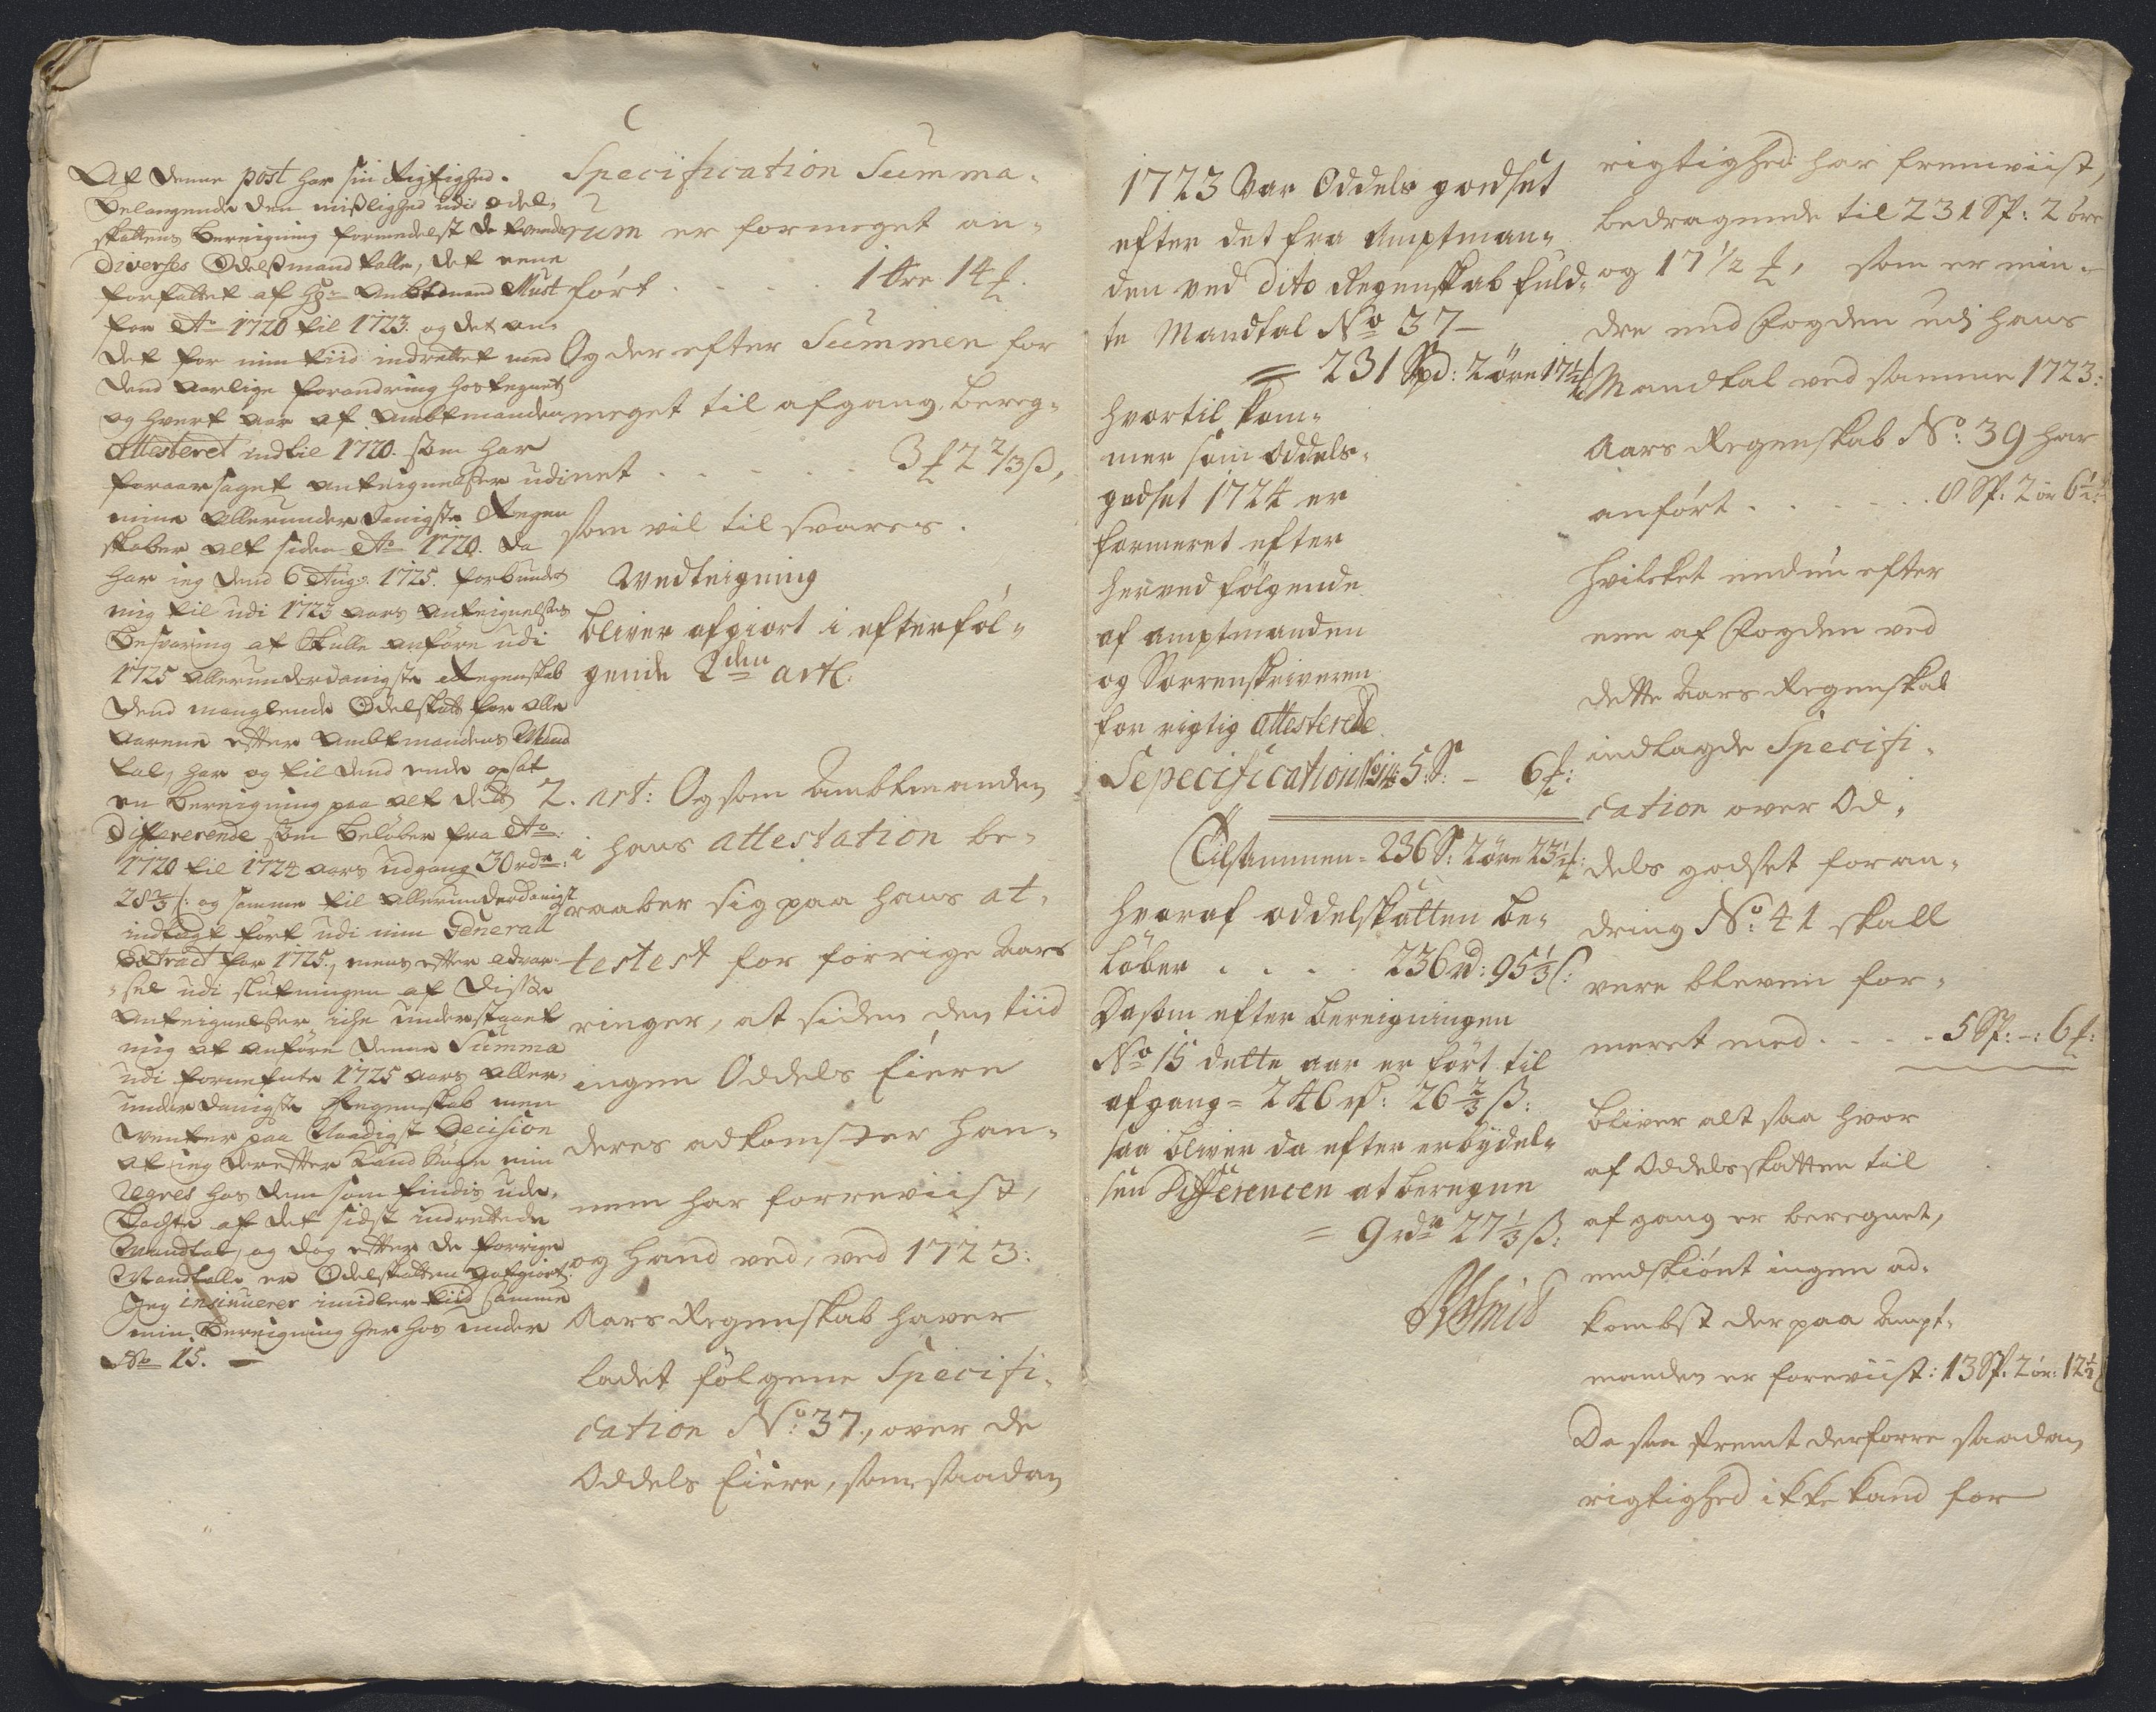 At denne post har sin Rigtighed.
Belangende den mislighed udi odel-
skattens bereigning formedelst de tvende
diverses Odelsmand talle, det eene
forfattet af Hr: Ambtmand Must
for Ao 1720 til 1723. og det an-
det for min tiid indrettet med
dend aarlige forandring hostegnet
og hvert aar af Ambtmanden
attesteret indtil 1720. som har
foraarsaget anteignelser udi
mine allerunderdanigste Regen
skaber alt siden Ao 1720. da
har ieg dend 6 Aug: 1725. forbundet
mig til udi 1723 aars anteignelses
besvaring at skulle anføre udi
1725 allerunderdanigste Regenskab
dend manglende Odelskatt for alle
aarene efter Ambtmandens Mand
tal, har og til dend ende opsat
en bereigning paa alt dets
differerende som beløber fra Ao:
1720 til 1724 aars udgang 30 rdr:
28 2/3 s: og samme til allerunderdanigst
indtegt ført udi min General
Extract for 1725, mens efter advar-
sel udi slutningen af disse
Antegnelser iche understaaet
mig at anføre denne Summa
udi fornefnte 1725 aars aller-
underdanigste Regenskab men
venter paa Naadigst Decision
at ieg derefter kand søge min
Regres hos dem som findis ude-
lachte af det sidst indrettede
Mandtal, og dog efter de forrige
Mandtalle er Odelskatten afgiort.
Jeg insinuerer imidler tiid samme
min bereigning her hos under
No 15.
Specification Summa-
rum er formeget an-
ført . . . . . 1 øre 14 £.
Og derefter Summen for
meget til afgang bereg-
net . . . . . 3 £ 2 2/3 ß,
som vil til svares.
Vedteigning
bliver afgiort i efterføl-
gende 2den artl:
2. art: Og som Ambtmanden
i hans attestation be-
raaber sig paa hans at-
testest for forrige Aars
ringer, at siden den tiid
ingen Oddels Eiere
deres adkomster han-
nem har forreviist,
og hand ved, ved 1723:
Aars Regenskab haver
ladet følgene Specifi-
cation No: 37, over de
Oddels Eiere, som saadan
1723 Var Oddels godset
efter det fra Amptman-
den ved dito Regenskab fuld-
te Mandtal No 37 –
= 231 Spd: 2 øre 17 1/2
hvortil kom-
mer som oddels-
godset 1724 er
formeret efter
herved følgende
af amptmanden
og Sorrenskriveren
for rigtig attesterede
Sepecification No 14: 5 S: – 6 £:
Tilsammen = 236 S: 2 øre 23 1/2 £:
hvoraf oddelskatten be-
løber . . . . 236 rd: 95 1/3 s:
Dasom efter bereigningen
No 15 dette aar er ført til
afgang = 246 rd: 26 2/3 ß:
saa bliver da efter erbydel-
sen Differencen at beregne
= 9 rdr 27 1/3 ß:
rigtighed har fremviist,
bedragende til 231 Sp: 2 øre
og 17 1/2 £, som er min-
dre end Fogden udj hans
Mandtal ved samme 1723:
Aars Regenskab No: 39 har
anført . . . . . 8 Sp: 2 ør 6 1/2
Hvilcket endnu efter
een af Fogden ved
dette Aars Regenskab
indlagde Specifi-
cation over Od-
dels godset foran-
dring No: 41 skall
vere bleven for-
meret med . . . . 5 Sp: –: 6 £:
bliver alt saa hvor
af Oddelsskatten til
afgang er beregnet,
endskiønt ingen ad-
kombst der paa Ampt-
manden er foreviist: 13 Sp: 2 ør: 12 1/2
Da saa fremt derforre saadan
rigtighed ikke kand for